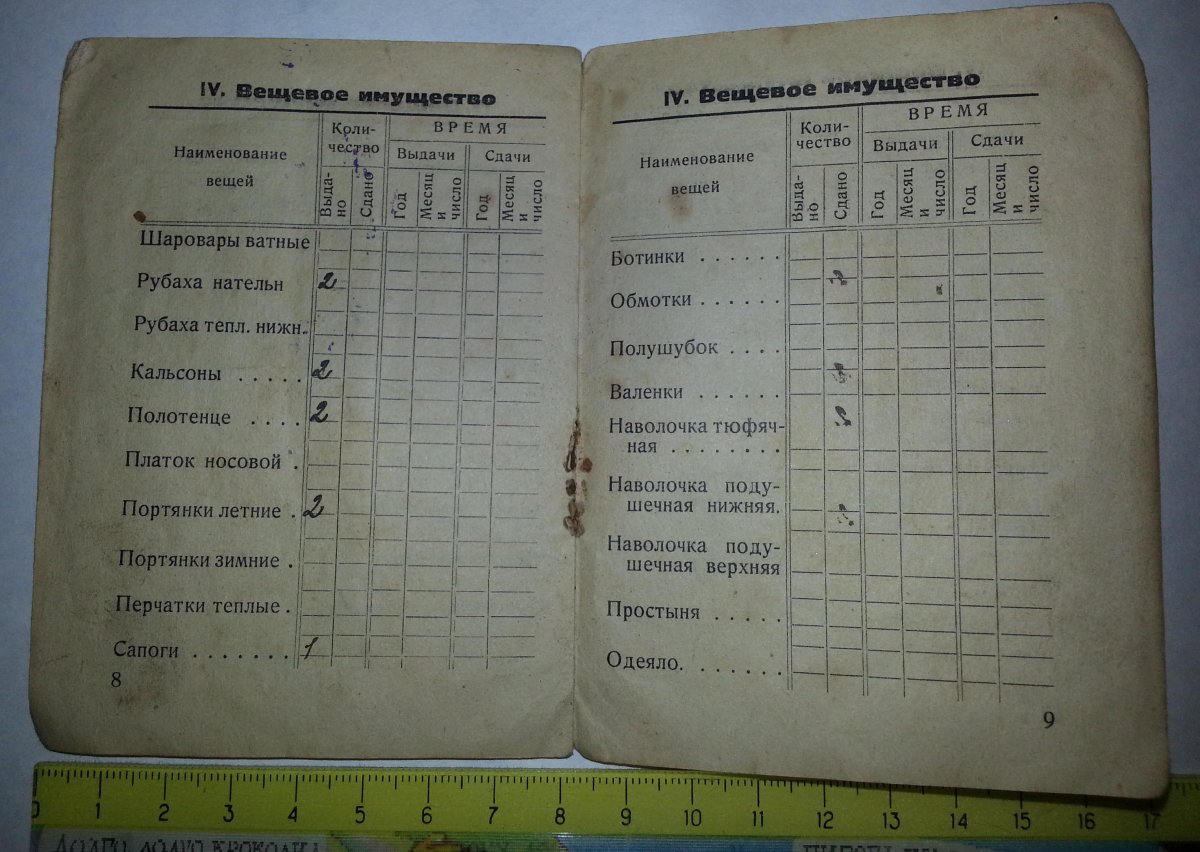 IV. Вещевое имущество
Наименование вещей
Количество
ВРЕМЯ
Выдачи
Сдачи
Выдано
Сдано
Год
Месяц и число
Год
Месяц и число
Шаровары ватные
Рубаха нательн 2
Рубаха тепл. нижн.
Кальсоны ..... 2
Полотенце .... 2
Платок носовой .
Портянки летние . 2
Портянки зимние .
Перчатки теплые .
Сапоги ....... 1
8
IV. Вещевое имущество
Наименование вещей
Количество
ВРЕМЯ
Выдачи
Сдачи
Выдано
Сдано
Год
Месяц и число
Год
Месяц и число
Ботинки ......
Обмотки ......
Полушубок ....
Валенки ......
Наволочка тюфяч-
ная ........
Наволочка поду-
шечная нижняя.
Наволочка поду-
шечная верхняя
Простыня .....
Одеяло. ......
9
0 1 2 3 4 5 6 7 8 9 10 11 12 13 14 15 16 17